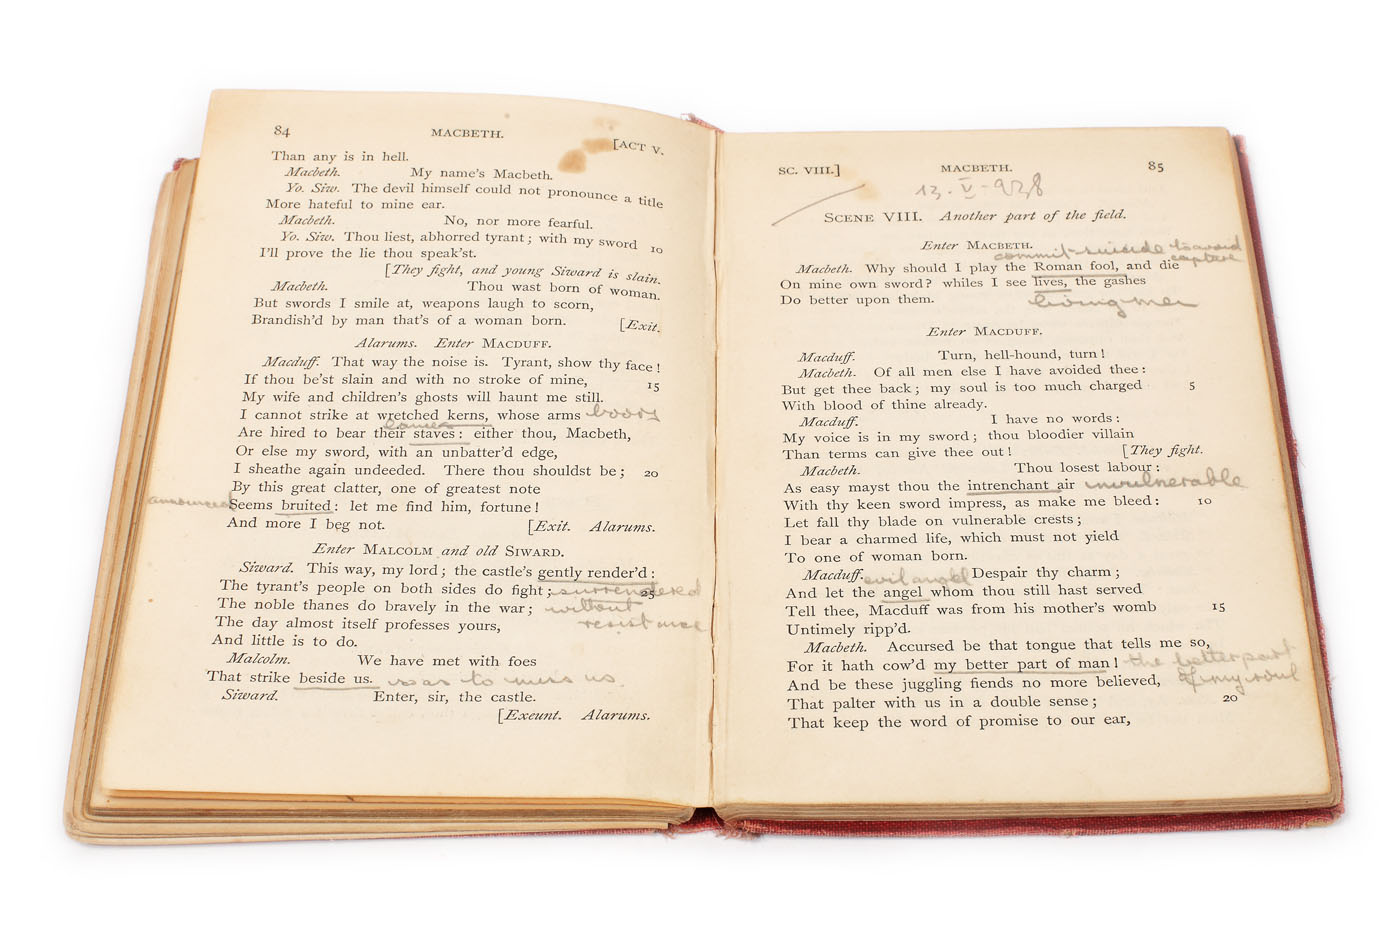 84
MACBETH.
[ACT V.
Than any is in hell.
Macbeth. My name's Macbeth.
Yo. Siw. The devil himself could not pronounce a title
More hateful to mine ear.
Macbeth. No, nor more fearful.
Yo. Siw. Thou liest, abhorred tyrant; with my sword 10
I'll prove the lie thou speak'st.
[They fight, and young Siward is slain.
Macbeth. Thou wast born of woman.
But swords I smile at, weapons laugh to scorn,
Brandish'd by man that's of a woman born. [Exit.
Alarums. Enter MACDUFF.
Macduff. That way the noise is. Tyrant, show thy face!
If thou be'st slain and with no stroke of mine, 15
My wife and children's ghosts will haunt me still.
I cannot strike at wretched kerns, whose arms
Are hired to bear their staves: either thou, Macbeth,
Or else my sword, with an unbatter'd edge,
I sheathe again undeeded. There thou shouldst be; 20
By this great clatter, one of greatest note
announced Seems bruited: let me find him, fortune!
And more I beg not. [Exit. Alarums.
Enter MALCOLM and old SIWARD.
Siward. This way, my lord; the castle's gently render'd:
The tyrant's people on both sides do fight; surrendered 25
The noble thanes do bravely in the war; without
The day almost itself professes yours, resistance
And little is to do.
Malcolm. We have met with foes
That strike beside us. so as to miss us.
Siward. Enter, sir, the castle.
[Exeunt. Alarums.
SC. VIII.]
MACBETH.
85
13. V. 938
SCENE VIII. Another part of the field.
Enter MACBETH.
commit suicide to avoid
capture
Macbeth. Why should I play the Roman fool, and die
On mine own sword? whiles I see lives, the gashes
Do better upon them. living men
Enter MACDUFF.
Macduff. Turn, hell-hound, turn!
Macbeth. Of all men else I have avoided thee:
But get thee back; my soul is too much charged 5
With blood of thine already.
Macduff. I have no words:
My voice is in my sword; thou bloodier villain
Than terms can give thee out! [They fight.
Macbeth. Thou losest labour:
As easy mayst thou the intrenchant air invulnerable
With thy keen sword impress, as make me bleed: 10
Let fall thy blade on vulnerable crests;
I bear a charmed life, which must not yield
To one of woman born.
Macduff. evil angel Despair thy charm;
And let the angel whom thou still hast served
Tell thee, Macduff was from his mother's womb 15
Untimely ripp'd.
Macbeth. Accursed be that tongue that tells me so,
For it hath cow'd my better part of man! the better part
And be these juggling fiends no more believed, of my soul
That palter with us in a double sense; 20
That keep the word of promise to our ear,